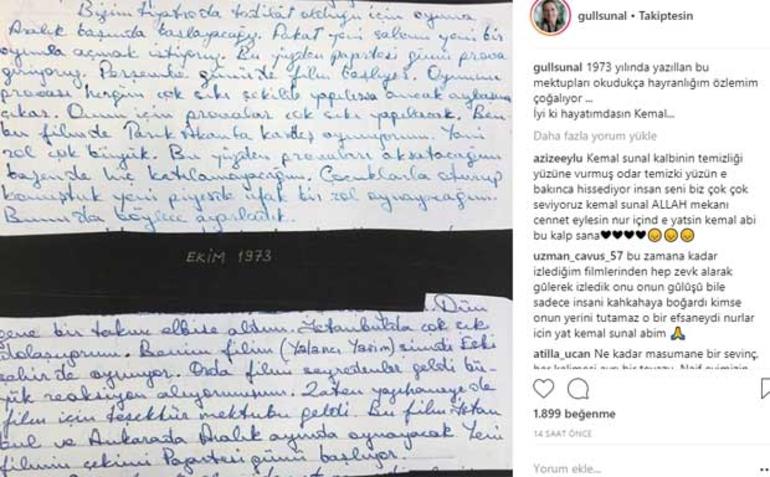 Bizim tiyatroda tadilât olduğu için oyuna
Aralık başında başlayacağız. Fakat yeni salonu yeni bir
oyunla açmak istiyoruz. Bu yüzden pazartesi günü prova
giriyoruz. Perşembe günü de film başlıyor. Oyunun
provası hergün çok sıkı şekilde yapılırsa ancak aybaşına
çıkar. Onun için provalar çok sıkı yapılacak. Ben
bu filmde Tarık Akanla kardeş oynuyorum. Yani
rol çok büyük. Bu yüzden provaları aksatacağım
bazende hiç katılamayacağım. Çocuklarla oturup
konuştuk yeni piyeste ufak bir rol oynayacağım.
Bunu da böylece ayarladık.
EKİM 1973
Dün
gene bir takım elbise aldım. İstanbulda çok şık
dolaşıyorum. Benim filim (Yalancı Yarim) şimdi Eski
şehir de oynuyor. Orda filmi seyredenler geldi bü-
yük reaksiyon alıyormuşum. Zaten yazıhaneye de
film için teşekkür mektubu geldi. Bu film İstan
bul ve Ankarada Aralık ayında oynayacak. Yeni
filmin çekimi Pazartesi günü başlıyor.
gullsunal • Takiptesin
gullsunal 1973 yılında yazıllan bu
mektupları okudukça hayranlığım özlemim
çoğalıyor ...
İyi ki hayatımdasın Kemal...
Daha fazla yorum yükle
azizeeylu Kemal sunal kalbinin temizliği
yüzüne vurmuş odar temizki yüzün e
bakınca hissediyor insan seni biz çok çok
seviyoruz kemal sunal ALLAH mekanı
cennet eylesin nur içind e yatsin kemal abi
bu kalp sana🖤🖤🖤🖤😞😞😞
uzman_cavus_57 bu zamana kadar
izlediğim filmlerinden hep zevk alarak
gülerek izledik onu onun gülüşü bile
sadece insani kahkahaya boğardı kimse
onun yerini tutamaz o bir efsaneydi nurlar
için yat kemal sunal abim 🙏
atilla_ucan Ne kadar masumane bir sevinç,
1.899 beğenme
14 SAAT ÖNCE
Yorum ekle...